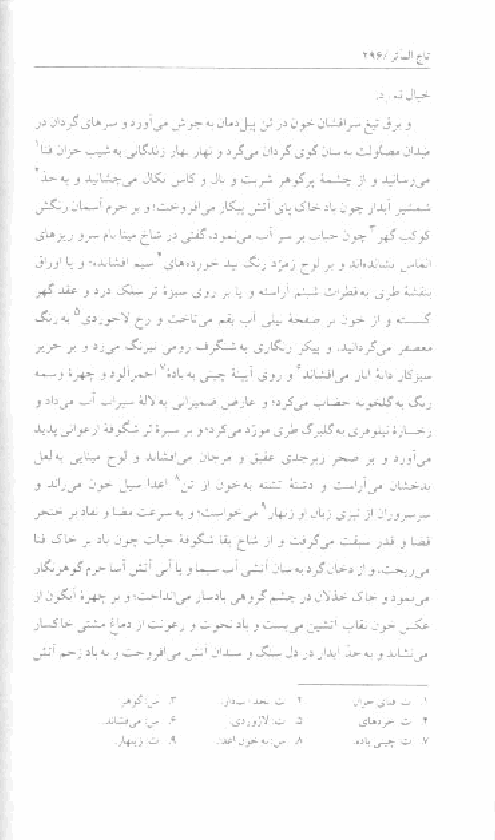 تاج المآثر / ۲۹۶
خیال
و برق تیغ سرافشان خون در تن پیل‌دمان به جوش می‌آورد و سرهای گردان در
میدان مصاولت به سان گوی گردان می‌کرد و نهار بهار زندگانی به شیب خزان فنا۱
می‌رسانید و از چشمهٔ پرگوهر شربت و بال و کاس نکال می‌چشانید و به حدّ۲
شمشیر آبدار چون باد خاک پای آتش پیکار می‌افروخت؛ و بر جرم آسمان رنگش
کوکب گهر۳ چون حباب بر سر آب می‌نمود، گفتی در شاخ مینا نام سرو ریزهای
الماس نشانده‌اند و بر لوح زمرّد رنگ بید خورده‌های۴ سیم افشانده؛ و یا اوراق
بنفشهٔ طری به قطرات شبنم آراسته و یا بر روی سبزهٔ تر سلک درد و عقد گهر
گسسته و از خون بر صفحهٔ نیلی آب بقم می‌تاخت و رخ لاجوردی۵ به رنگ
معصفر می‌گردانید، و پیکر زنگاری به شنگرف رومی نیرنگ می‌زد و بر حریر
سبزکار دانهٔ انار می‌افشاند۶ و روی آیینهٔ چینی به باده۷ احمرآلود و چهرهٔ وسمه
رنگ به گلغونه خضاب می‌کرد؛ و عارض ضمیرانی به لالهٔ سیراب آب می‌داد و
رخسارهٔ نیلوفری به گلبرگ طری مورّد می‌کرد؛ و بر سبزهٔ تر شکوفهٔ ارغوانی پدید
می‌آورد و بر صحن زبرجدی عقیق و مرجان می‌افشاند و لوح مینایی به لعل
بدخشان می‌آراست و دشنهٔ تشنه به خون از تن۸ اعدا سیل خون می‌راند و
سرسروران از تیزی زبان او زنهار۹ می‌خواست؛ و به سرعت مضا و نفاد بر خنجر
قضا و قدر سبقت می‌گرفت و از شاخ بقا شکوفهٔ حیات چون باد بر خاک فنا
می‌ریخت، و از دخان گرد به سان آتشی آب سیما و یا آبی آتش آسا جرم گوهرنگار
می‌نمود و خاک خذلان در چشم گروهی بادسار می‌انداخت؛ و بر چهرهٔ آبگون از
عکس خون نقاب آتشین می‌بست و باد نخوت و رعونت از دماغ مشتی خاکسار
می‌نشاند و به حدّ آبدار در دل سنگ و سندان آتش می‌افروخت و به باد زخم آتش
۱. ت: فنای خزان. ۲. ت: بحد آب‌دار. ۳. س: گوهر.
۴. ت: خردهای. ۵. ت: لازوردی. ۶. س: می‌فشاند.
۷. ت: چینی باده. ۸. س: به خون ۹. ت: زینهار.